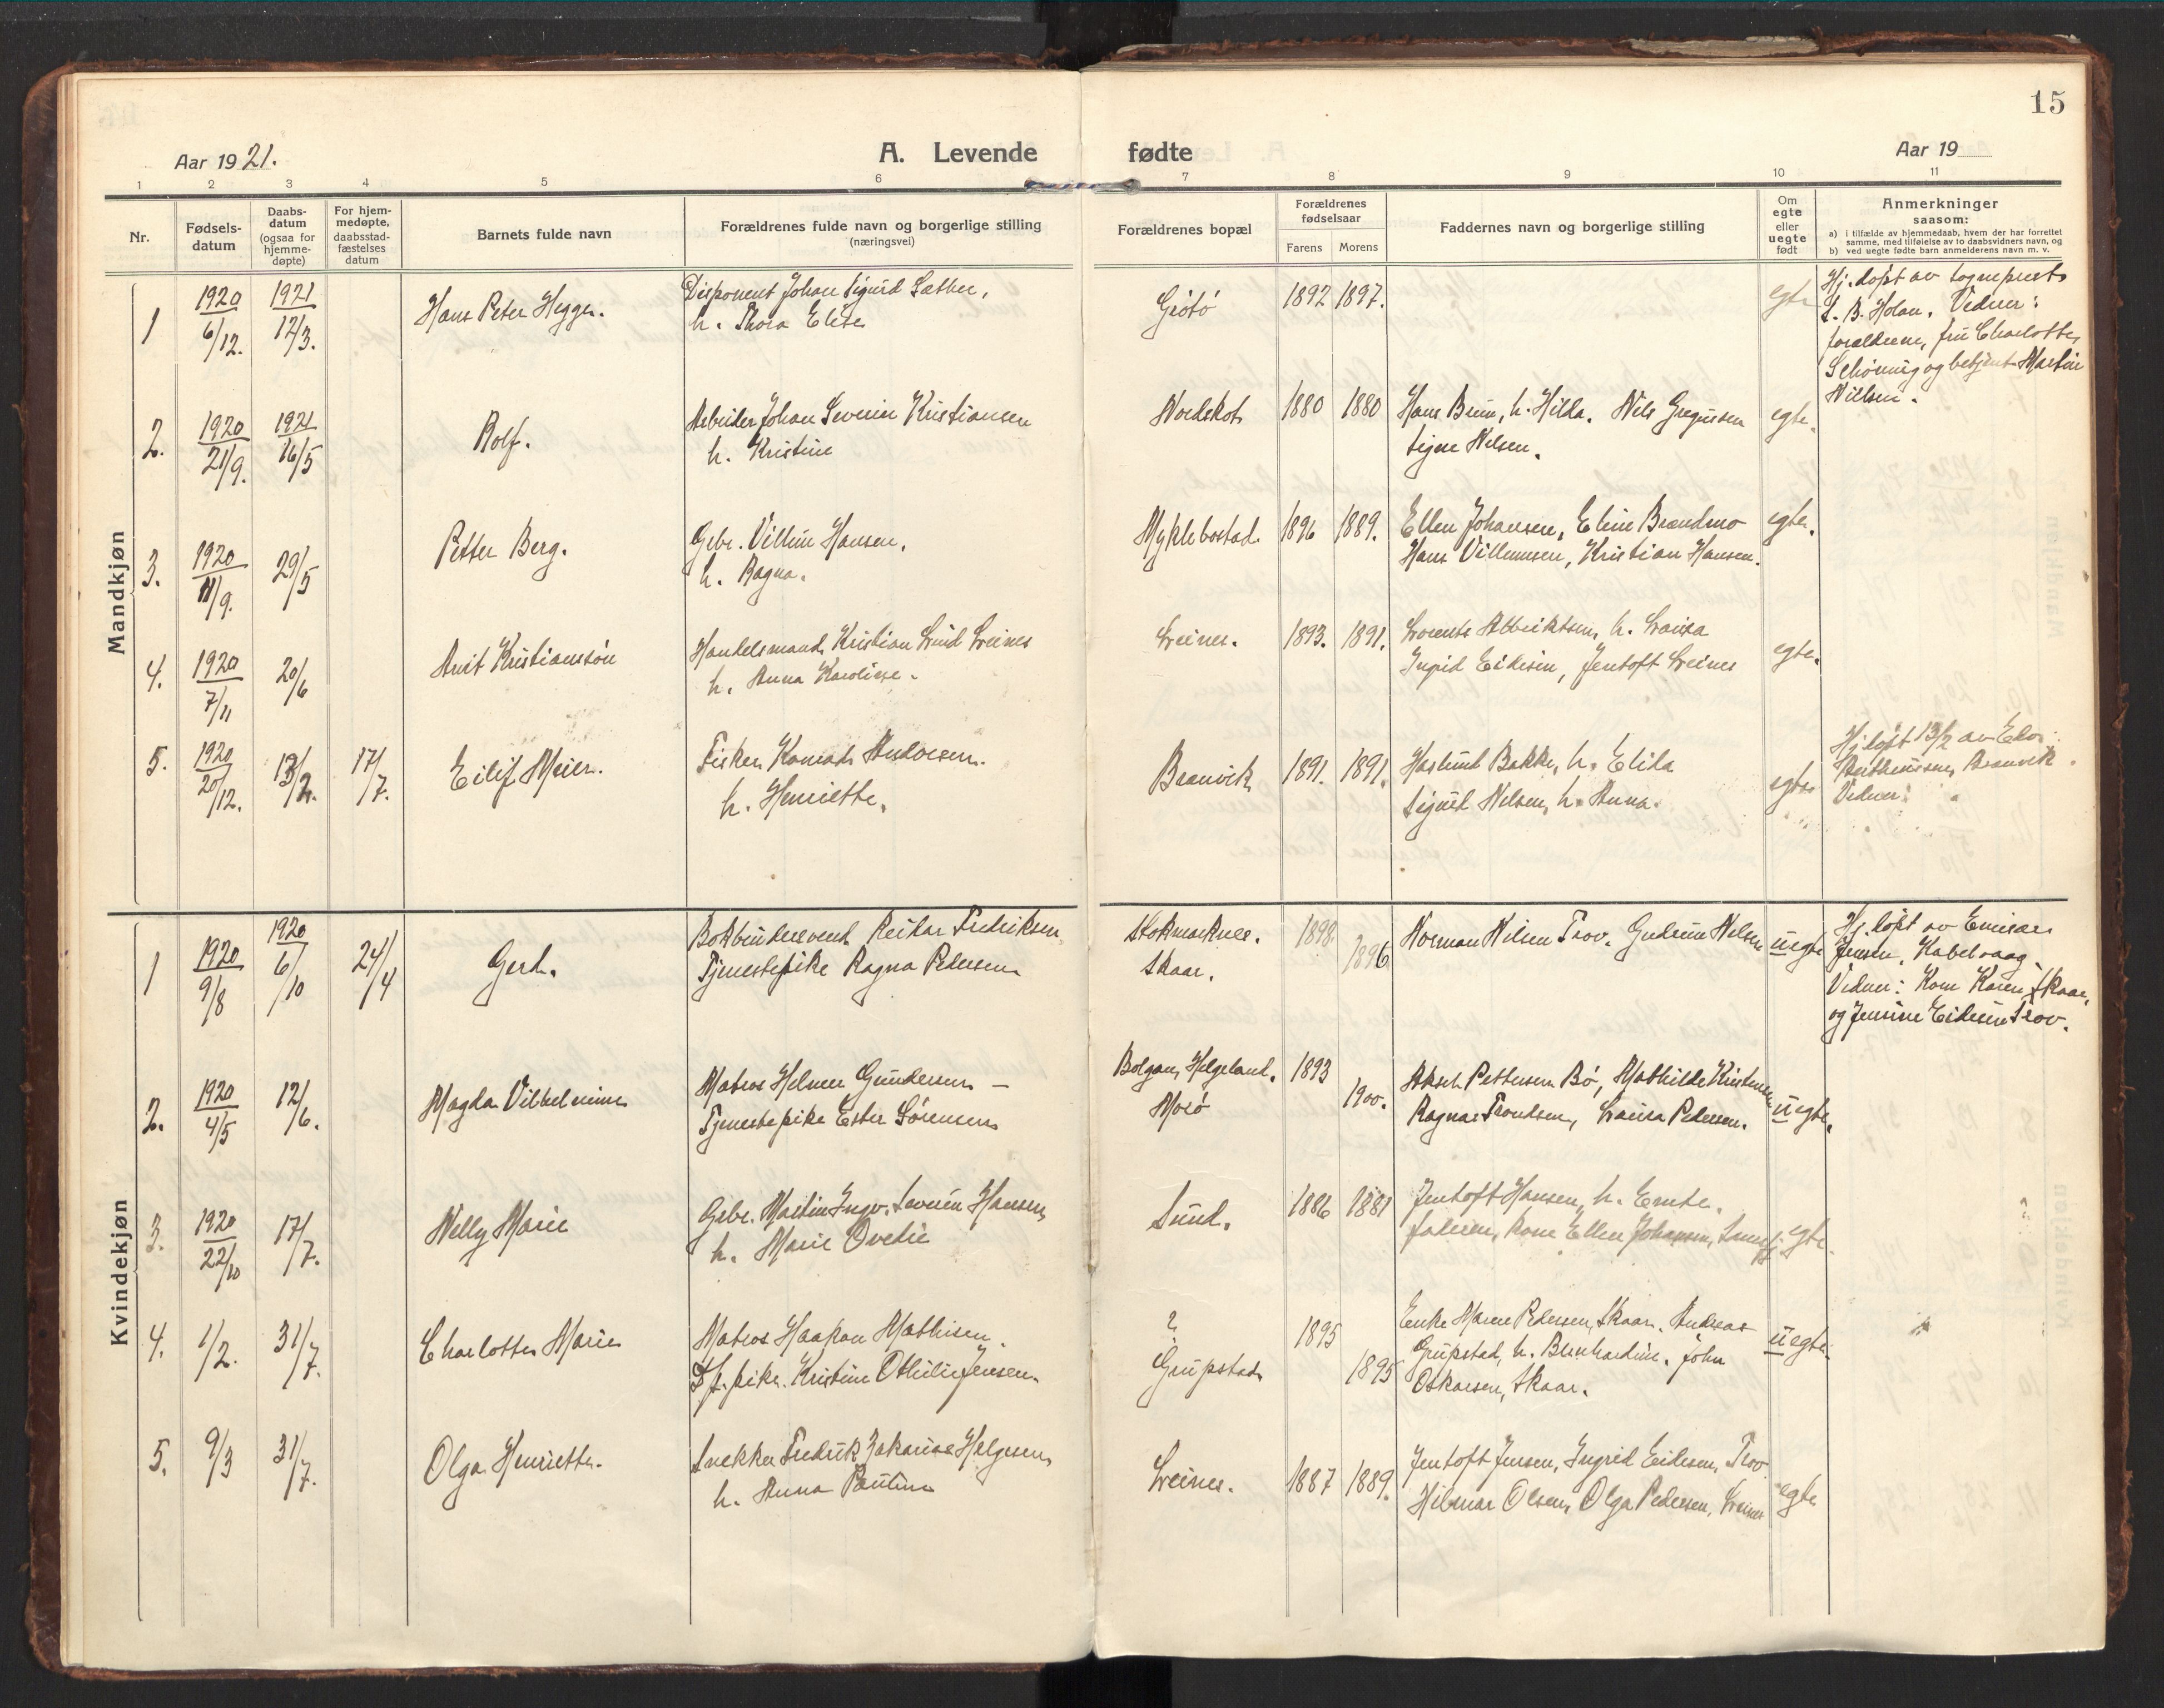 15
Aar 1921.
A. Levende fødte
Aar 19
1 2 3 4 5 6 7 8 9 10 11
Nr.
Fødsels-
datum
Daabs-
datum
(ogsaa for
hjemme-
døpte)
For hjem-
medøpte,
daabsstad-
fæstelses
datum
Barnets fulde navn
Forældrenes fulde navn og borgerlige stilling
(næringsvei)
Forældrenes bopæl
Forældrenes
fødselsaar
Farens Morens
Faddernes navn og borgerlige stilling
Om
egte
eller
uegte
født
Anmerkninger
saasom:
a) i tilfælde av hjemmedaab, hvem der har forrettet
samme, med tilføielse av to daabsvidners navn, og
b) ved uegte fødte barn anmelderens navn m. v.
Mandkjøn
1 1920 6/12. 1921 12/3. Hans Peter Hegge.
Disponent Johan Sigurd Sæther,
h. Thora Elise
Grøtø 1892 1897. egte
Hj. døpt av sogneprest
S. B. Holan. Vidner:
forældrene, fru Charlotte
Schøning og betjent Martin
Nilsen.
2. 1920 21/9. 1921 16/5 Rolf.
Arbeider Johan Severin Kristiansen
h. Kristine
Nordskot 1880 1880
Hans Brun, h. Hilda. Nils Gregusen
Signe Nilsen.
egte.
3. 1920 11/9. 29/5 Petter Berg.
Gbr. Villum Hansen.
h. Ragna.
Myklebostad 1896 1889.
Ellen Johansen, Eline Brandmo
Hans Villumsen, Kristian Hansen.
egte.
4. 1920 7/11 20/6 Arnt Kristiansøn
Handelsmand Kristian Lund Leines
h. Anna Karoline.
Leines. 1893. 1891.
Lorents Albriktsen, h. Lavisa
Ingrid Eidesen, Jentoft Leines
egte.
5. 1920 20/12. 13/2. 17/7. Eilif Meier.
Fisker Konrad Andorsen.
h. Henriette.
Branvik 1891. 1891.
Haslund Bakke, h. Elida
Sigurd Nilsen, h. Anna.
egte
Hj. døpt 13/2 av
Branvik.
Vidner:
Kvindekjøn
1 1920 9/8 1920 6/10 24/4 Gerd.
Bokbindersvend Reidar Fredriksen
Tjenestepike Ragna Pedersen
Stokmarknes.
Skaar.
1898. 1896
Norman Nilsen Trov. Gudrun Nilsen
uegte
Hj. døpt av Emissær
Jensen, Kabelvaag.
Vidner: Kone Karen Skaar,
og Jensine Eidesen Trov.
2. 1920 4/5 12/6. Magda Vilhelmine
Matros Helmer Gundersen —
Tjenestepike Ester Sørensen
Bolgan, Helgeland.
Morø
1893 1900.
Aksel Pettersen Bø, Mathilde Kristensen
Ragnar Trondsen, Lavisa Pedersen.
uegte.
3. 1920 22/10 17/7. Nelly Marie
Gbr. Martin Ingv. Severin Hansen
h. Marie Ovedie
Sund. 1886 1881
Jentoft Hansen, h. Emte.
faderen, kone Ellen Johansen,
egte.
4. 1/2. 31/7. Charlotte Marie
Matros Haakon Mathisen.
Tj. pike. Kristine Othilie Jensen.
?
Grupstad
1895 1895
Enke Maren Pedersen, Skaar. Andreas
Grupstad, h. Bernhardine. John
Oskarsen, Skaar.
uegte.
5. 9/3 31/7. Olga Henriette.
Snekker Fredrik Zakarias Helgesen
h. Anna Pauline
Leines. 1887 1889.
Jentoft Jensen, Ingrid Eidesen, Trov
Hilmar Olsen, Olga Pedersen, Leines
egte